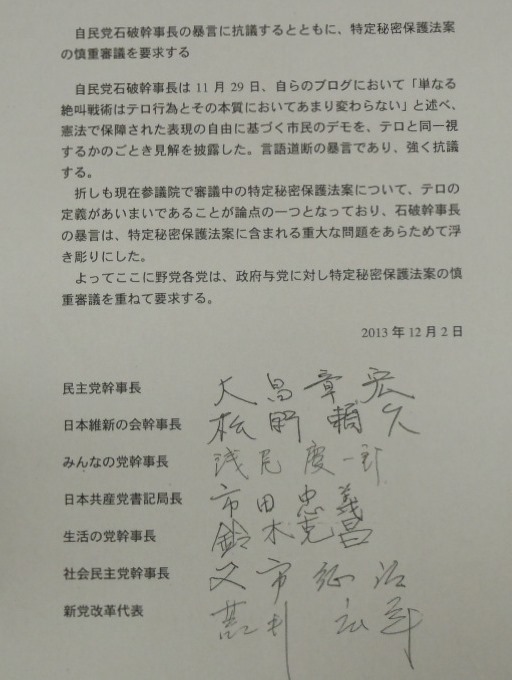 自民党石破幹事長の暴言に抗議するとともに、特定秘密保護法案
の慎重審議を要求する
自民党石破幹事長は11月29日、自らのブログにおいて「単なる
絶叫戦術はテロ行為とその本質においてあまり変わらない」と述べ、
憲法で保障された表現の自由に基づく市民のデモを、テロと同一視
するかのごとき見解を披露した。言語道断の暴言であり、強く抗議
する。
折しも現在参議院で審議中の特定秘密保護法案について、テロの
定義があいまいであることが論点の一つとなっており、石破幹事長
の暴言は、特定秘密保護法案に含まれる重大な問題をあらためて浮
き彫りにした。
よってここに野党各党は、政府与党に対し特定秘密保護法案の慎
重審議を重ねて要求する。
2013年12月2日
民主党幹事長 大畠章宏
日本維新の会幹事長 松野頼久
みんなの党幹事長 浅尾慶一郎
日本共産党書記局長 市田忠義
生活の党幹事長 鈴木克昌
社会民主党幹事長 又市征治
新党改革代表 荒井広幸